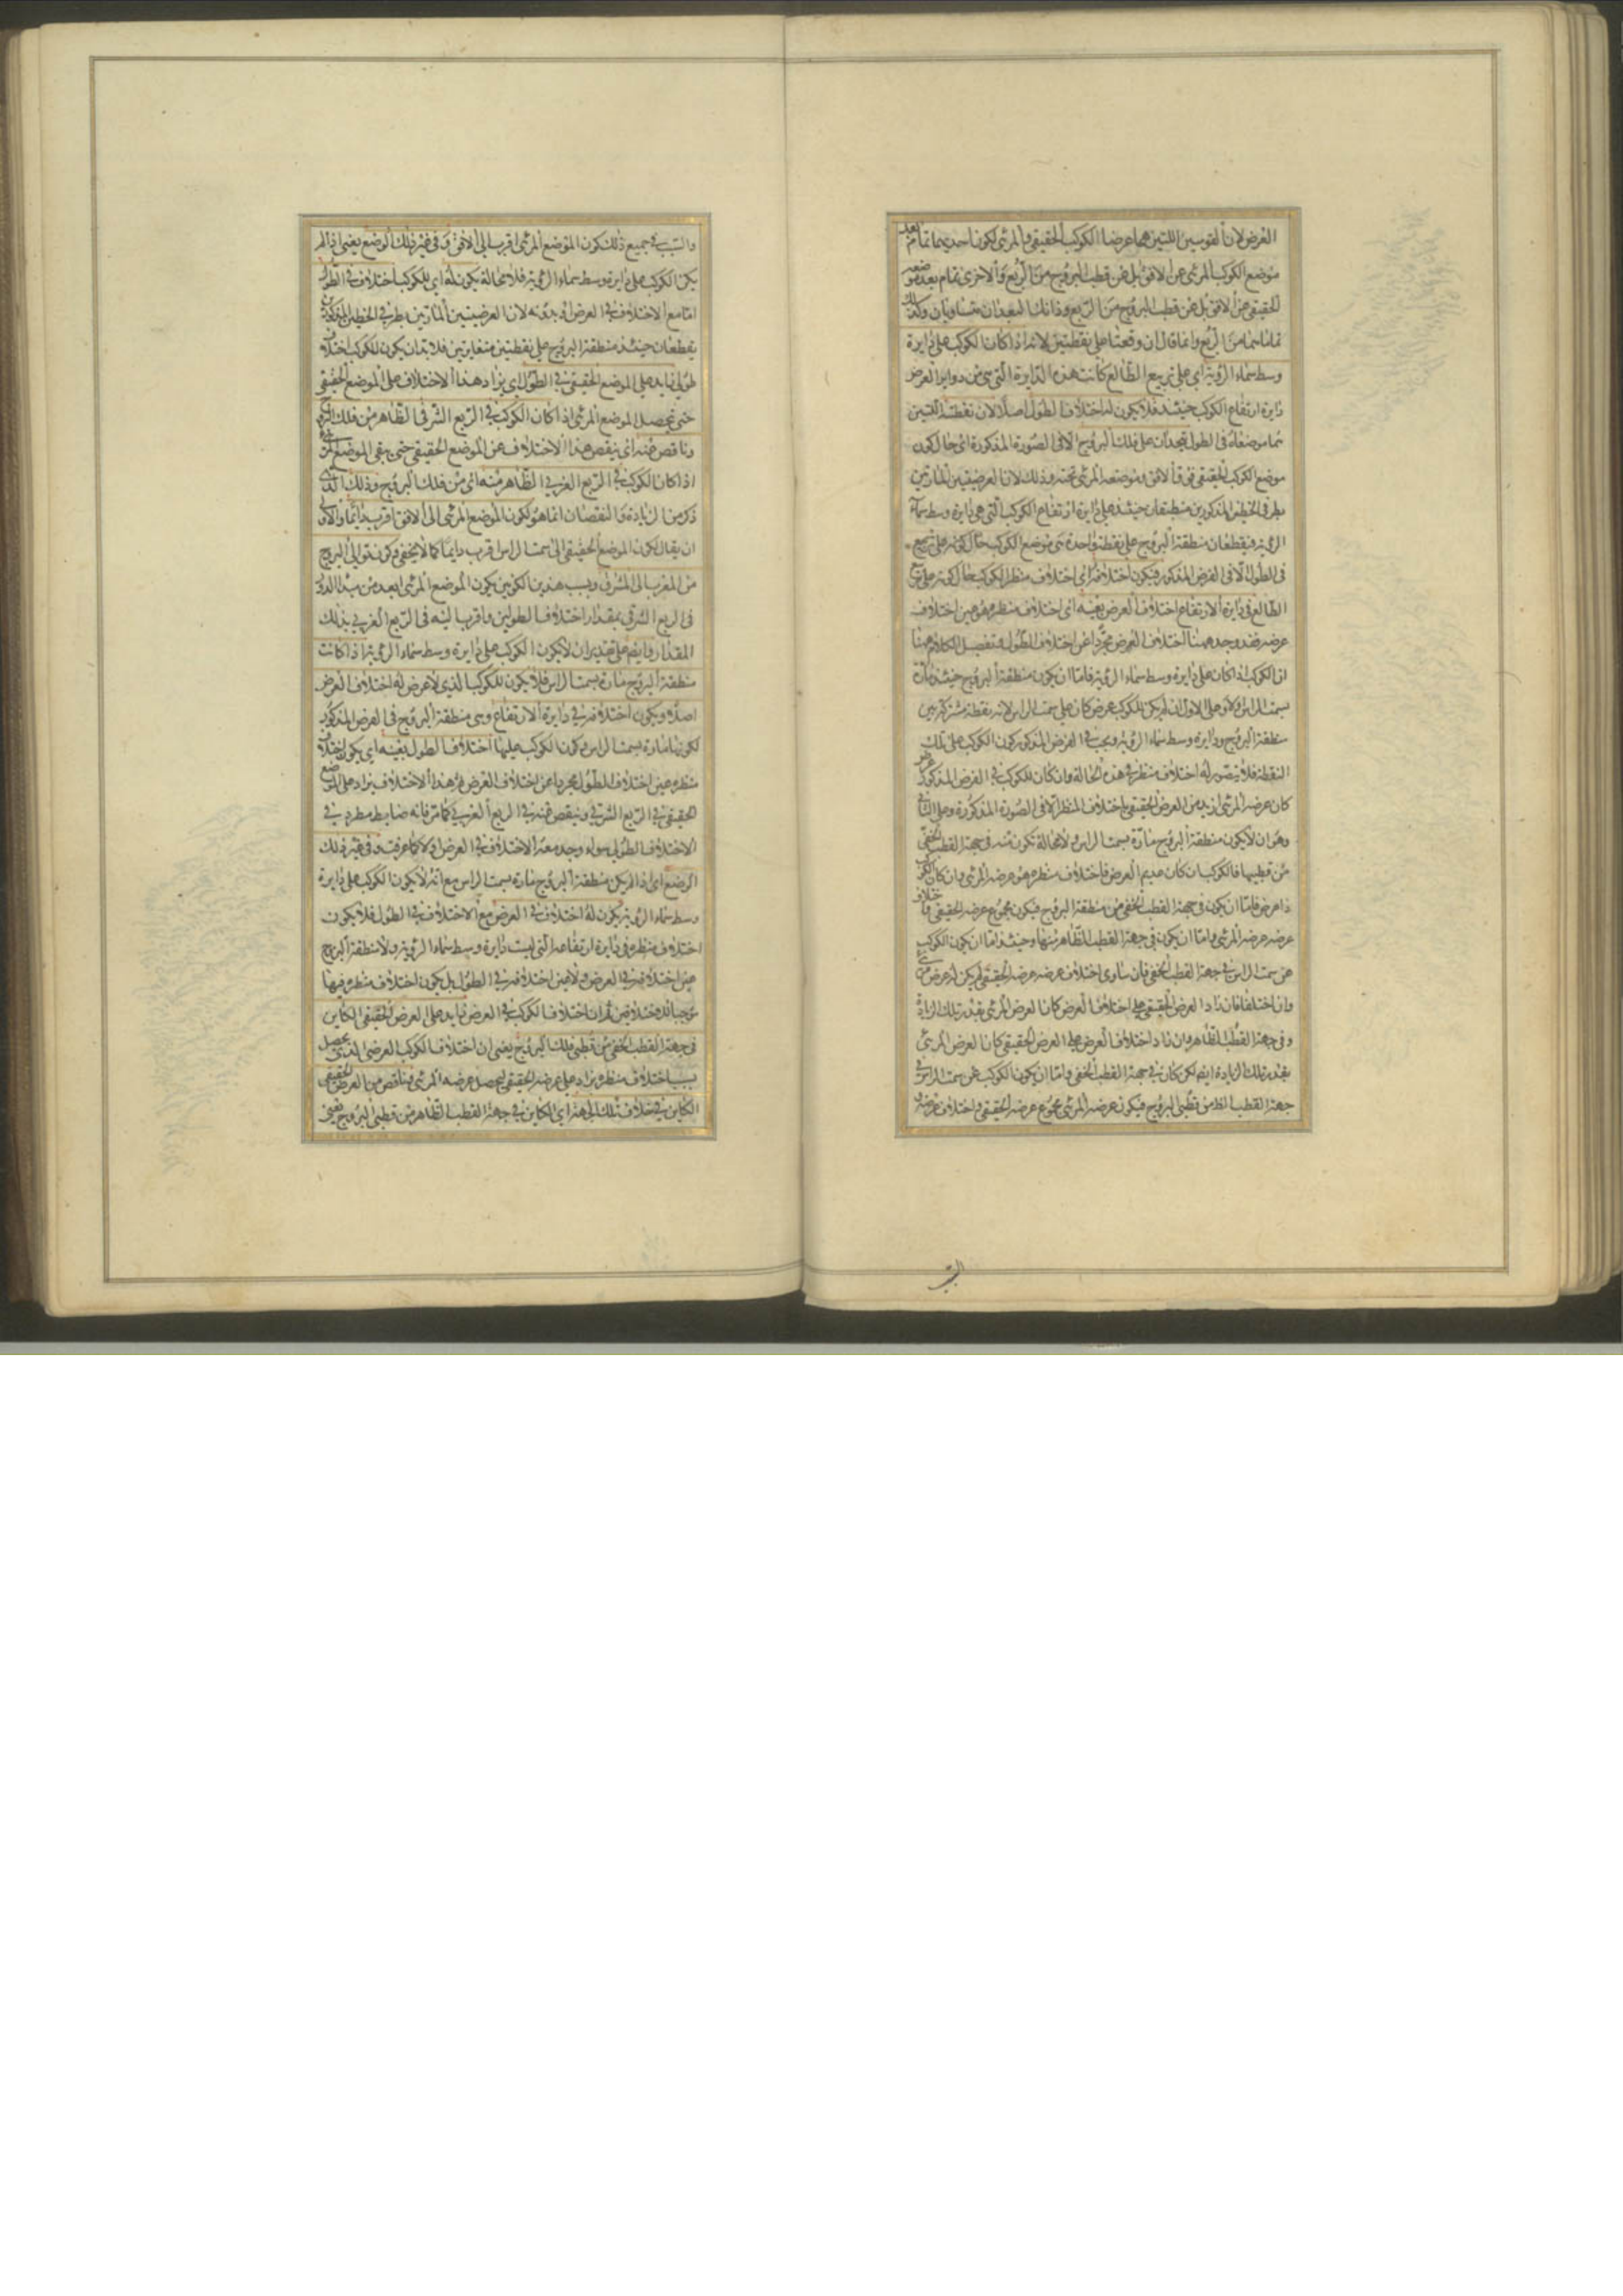 العرض لان القوسين اللتين هما عرضا الكوكب الحقيقي والمرئي لكون احديهما تمام بعد
موضع الكوكب المرئي عن الافق بل عن قطب البروج من الربع والاخرى تمام بعد موضعه
الحقيقي عن الافق بل عن قطب البروج من الربع وذانك البعدان متساويان وكذلك
تماماهما من الربع وانما قال ان وقعتا على نقطتين لانه اذا كان الكوكب على دايرة
وسط سماء الرؤية اي على تربيع الطالع كانت هذه الدايرة التي هي من دواير العرض
دايرة ارتفاع الكوكب حينئذ فلا يكون له اختلاف الطول اصلا لان نقطتيه اللتين
هما موضعاه في الطول تتحدان على فلك البروج الا في الصورة المذكورة اي حال كون
موضع الكوكب الحقيقي فوق الافق وموضعه المرئي تحته وذلك لان العرضيتين المارتين
بطرفي الخطين المذكورين منطبقتان حينئذ على دايرة ارتفاع الكوكب التي هي دايرة وسط سماء
الرؤية فيقطعان منطقة البروج على نقطة واحدة هي موضع الكوكب حال كونه على تربيع
في الطول الا في الفرض المذكور فيكون اختلافه اي اختلاف منظر الكوكب حال كونه على تربيع
الطالع في دايرة الارتفاع اختلاف العرض بعينه اي اختلاف منظره هو عين اختلاف
عرضه فقد وجد ههنا اختلاف العرض مجردا عن اختلاف الطول وتفصيل الكلام ههنا
ان الكوكب اذا كان على دايرة وسط سماء الرؤية فاما ان يكون منطقة البروج حينئذ مارة
بسمت الراس او لا وعلى الاول ان لم يكن للكوكب عرض كان على سمت الراس لانه نقطة مشتركة بين
منطقة البروج ودايرة وسط سماء الرؤية ويجب في الفرض المذكور كون الكوكب على تلك
النقطة فلا يتصور له اختلاف منظر في هذه الحالة وان كان للكوكب في الفرض المذكور عرض
كان عرضه المرئي ازيد من العرض الحقيقي باختلاف المنظر الا في الصورة المذكورة وعلى الثاني
وهو ان لا يكون منطقة البروج مارة بسمت الراس ولا محالة تكون منه في جهة القطب الخفي
من قطبيها فالكوكب ان كان عديم العرض فاختلاف منظره هو عرضه المرئي وان كان الكوكب
ذا عرض فاما ان يكون في جهة القطب الخفي من منطقة البروج فيكون مجموع عرضه الحقيقي واختلاف
عرضه عرضه المرئي واما ان يكون في جهة القطب الظاهر منها وحينئذ اما ان يكون الكوكب
عن سمت الراس في جهة القطب الخفي فان ساوى اختلاف عرضه عرضه الحقيقي لم يكن له عرض مرئي
وان اختلفا فان زاد العرض الحقيقي على اختلاف العرض كان العرض المرئي بقدر تلك الزيادة
وفي جهة القطب الظاهر وان زاد اختلاف العرض على العرض الحقيقي كان العرض المرئي
بقدر تلك الزيادة ايضا لكن كان في جهة القطب الخفي واما ان يكون الكوكب عن سمت الراس في
جهة القطب الظاهر من قطبي البروج فيكون عرضه المرئي مجموع عرضه الحقيقي واختلاف عرضه و
والسبب في جميع ذلك كون الموضع المرئي اقرب الى الافق وفي غير ذلك الوضع يعني اذا لم
يكن الكوكب على دايرة وسط سماء الرؤية فلا محالة يكون له اي للكوكب اختلاف في الطول
اما مع الاختلاف في العرض او بدونه لان العرضيتين المارتين بطرفي الخطين المذكورين
يقطعان حينئذ منطقة البروج على نقطتين متغايرتين فلا بد ان يكون للكوكب اختلاف
طولي زايد على الموضع الحقيقي في الطول اي يزاد هذا الاختلاف على الموضع الحقيقي
حتى يحصل الموضع المرئي اذا كان الكوكب في الربع الشرقي الظاهر من فلك البروج
وناقص منه اي ينقص هذا الاختلاف عن الموضع الحقيقي حتى يبقى الموضع المرئي
اذا كان الكوكب في الربع الغربي الظاهر منه اي من فلك البروج وذلك الذي
ذكر من الزيادة والنقصان انما هو لكون الموضع المرئي الى الافق اقرب دايما والاولى
ان يقال لكون الموضع الحقيقي الى سمت الراس اقرب دايما كما لا يخفى وكون توالي البروج
من المغرب الى المشرق وبسبب هذين الكونين يكون الموضع المرئي ابعد من مبدا الدور
في الربع الشرقي بمقدار اختلاف الطولين واقرب اليه في الربع الغربي بذلك
المقدار وايضا على تقدير ان لا يكون الكوكب على دايرة وسط سماء الرؤية اذا كانت
منطقة البروج مارة بسمت الراس فلا يكون للكوكب الذي لا عرض له اختلاف العرض
اصلا ويكون اختلافه في دايرة الارتفاع وهي منطقة البروج في الفرض المذكور
لكونها مارة بسمت الراس وكون الكوكب عليها اختلاف الطول بعينه اي يكون اختلاف
منظره عين اختلاف الطول مجردا عن اختلاف العرض ثم هذا الاختلاف يزاد على الموضع
الحقيقي في الربع الشرقي وينقص منه في الربع الغربي كما مر فانه ضابط مطرد في
الاختلاف الطولي سواء وجد معه الاختلاف في العرض او لا كما عرفت وفي غير ذلك
الوضع اي اذا لم يكن منطقة البروج مارة بسمت الراس مع انه لا يكون الكوكب على دايرة
وسط سماء الرؤية يكون له اختلاف في العرض مع الاختلاف في الطول فلا يكون
اختلاف منظره في دايرة ارتفاعه التي ليست دايرة وسط سماء الرؤية ولا منطقة البروج
عين اختلافه في العرض ولا عين اختلافه في الطول بل يكون اختلاف منظره فيها
موجبا للاختلافين ثم ان اختلاف الكوكب في العرض زايد على العرض الحقيقي الكاين
في جهة القطب الخفي من قطبي فلك البروج يعني ان اختلاف الكوكب العرضي الذي يحصل
بسبب اختلاف منظره يزاد على عرضه الحقيقي ليحصل عرضه المرئي وناقص من العرض الحقيقي
الكاين في خلاف تلك الجهة اي الكاين في جهة القطب الظاهر من قطبي البروج يعني